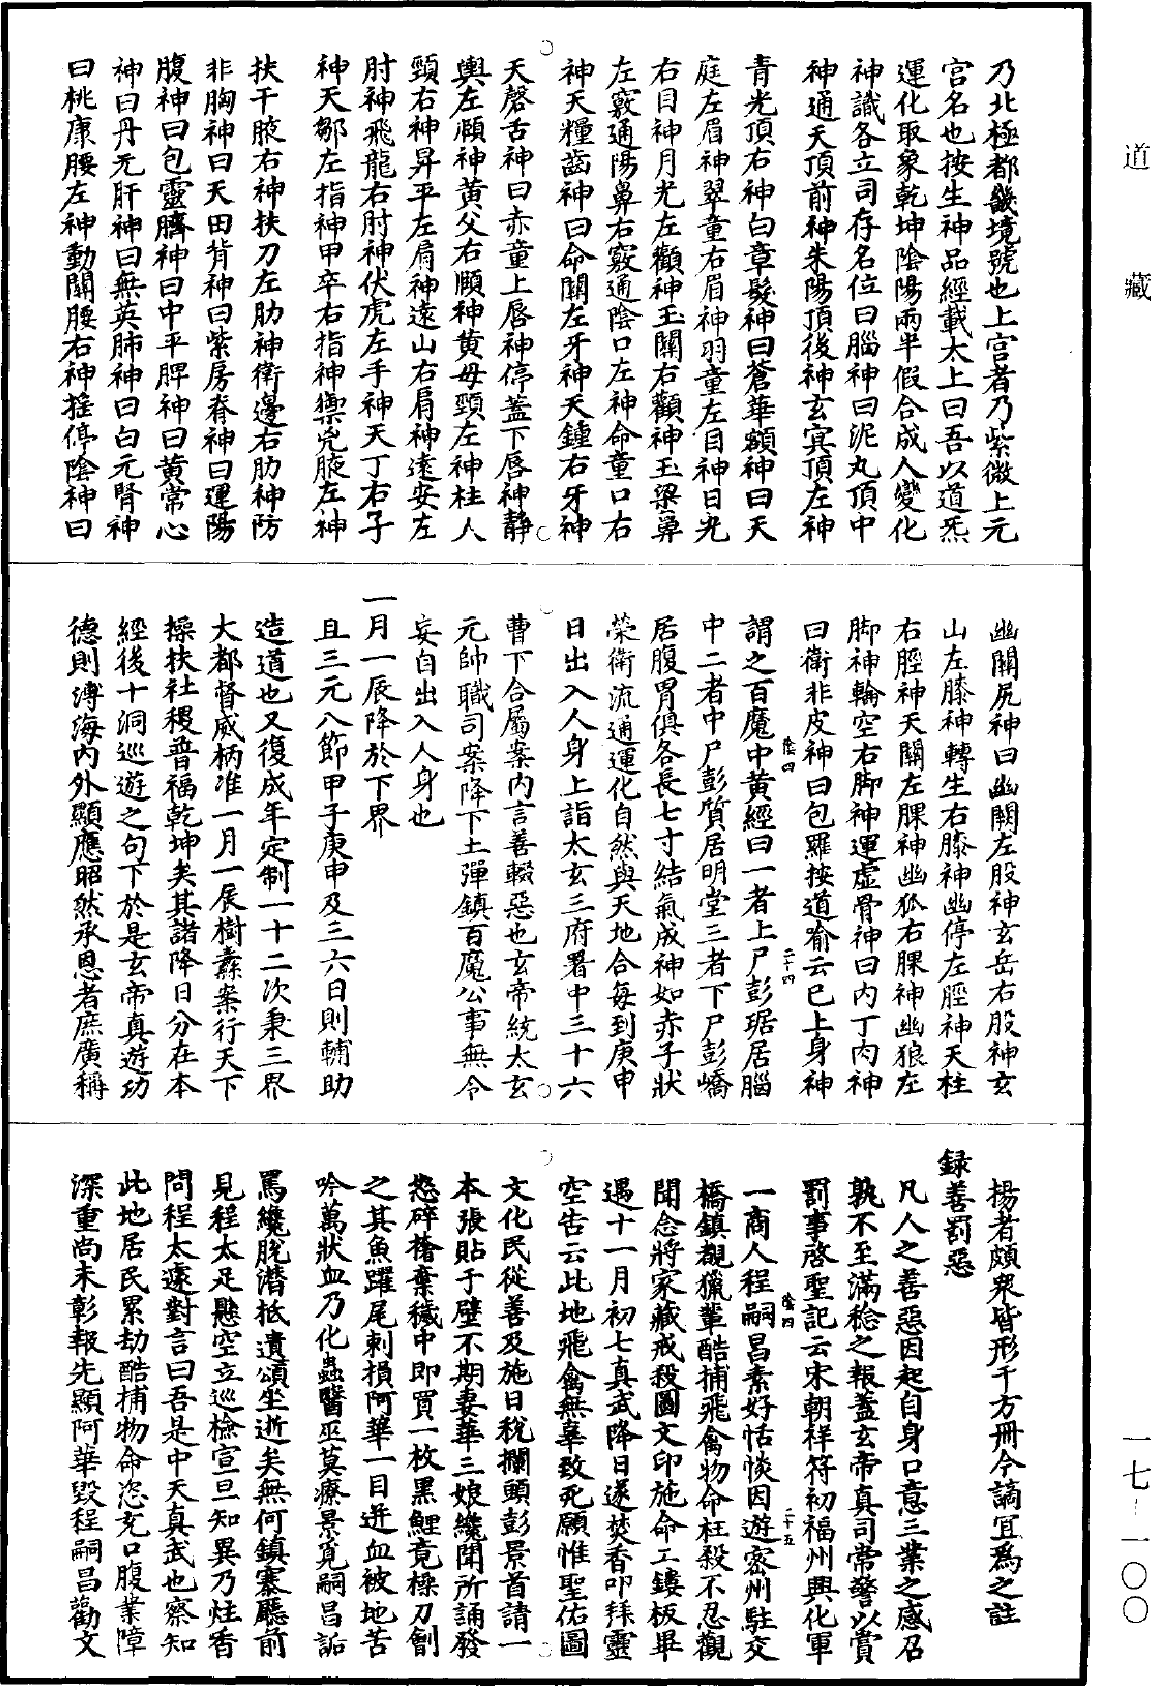 道藏
乃北極都畿境號也上宫者乃紫微上元
宫名也按生神品經載太上曰吾以道炁
運化取象乾坤陰陽兩半假合成人變化
神識各立司存名位曰腦神曰泥丸頂中
神通天頂前神朱陽頂後神玄冥頂左神
青光頂右神白章髮神曰蒼華額神曰天
庭左眉神翠童右眉神羽童左目神日光
右目神月光左顴神玉闕右顴神玉梁鼻
左竅通陽鼻右竅通陰口左神命童口右
神天糧齒神曰命關左牙神天鍾右牙神
天磬舌神曰赤童上唇神停蓋下唇神静
輿左頥神黄父右頥神黄母頸左神柱人
頸右神昇平左肩神遠山右肩神遠安左
肘神飛龍右肘神伏虎左手神天丁右手
神天鄒左指神甲卒右指神禦兇腋左神
扶干腋右神扶刀左肋神衛邊右肋神防
非胸神曰天田背神曰紫房脊神曰運陽
腹神曰包靈臍神曰中平脾神曰黄常心
神曰丹元肝神曰無英肺神曰白元腎神
曰桃康腰左神動關腰右神摇停陰神曰
幽關尻神曰幽闕左股神玄岳右股神玄
山左膝神轉生右膝神幽停左脛神天柱
右脛神天關左腂神幽狐右腂神幽狼左
脚神輪空右脚神運虚骨神曰内丁肉神
曰衛非皮神曰包羅按道喻云已上身神
謂之百魔中黄經曰一者上尸彭琚居腦
中二者中尸彭質居明堂三者下尸彭嶠
居腹胃俱各長七寸結氣成神如赤子狀
榮衛流通運化自然與天地合每到庚申
日出入人身上詣太玄三府署中三十六
曹下合屬案内言善輟惡也玄帝統太玄
元帥職司案降下土彈鎮百魔公事無令
妄自出入人身也
一月一辰降於下界
且三元八節甲子庚申及三六日則輔助
造道也又復成年定制一十二次秉三界
大都督威柄准一月一辰樹纛案行天下
操扶社稷普福乾坤矣其諸降日分在本
經後十洞巡遊之句下於是玄帝真遊功
德則溥海内外顯應昭然承恩者庶廣稱
揚者頗衆皆形千方冊今謫冝爲之註
録善罰惡
凡人之善惡因起自身口意三業之感召
孰不至滿稔之報蓋玄帝真司常警以賞
罰事啓聖記云宋朝祥符初福州興化軍
一商人程嗣昌素好恬惔因遊密州駐交
橋鎮覩獵輩酷捕飛禽物命枉殺不忍觀
聞念將家藏戒殺圖文印施命工鏤板畢
遇十一月初七真武降日遂焚香叩拜靈
空告云此地飛禽無辜致死願惟聖佑圖
文化民從善及施日税攔頭彭景首請一
本張貼于壁不期妻華三娘纔聞所誦發
怒碎搶棄穢中即買一枚黑鯉竟操刀劊
之其魚躍尾刺損阿華一目迸血被地苦
吟萬狀血乃化蟲醫巫莫療景覓嗣昌詬
罵纔脱潜抵遺頌坐逝矣無何鎮寨廳前
見程太足懸空立巡檢宣旦知異乃炷香
問程太遽對言曰吾是中天真武也察知
此地居民累劫酷捕物命恣充口腹業障
深重尚未彰報先顯阿華毁程嗣昌勸文
陰四
二十四
陰四
二十五
一七-一〇〇